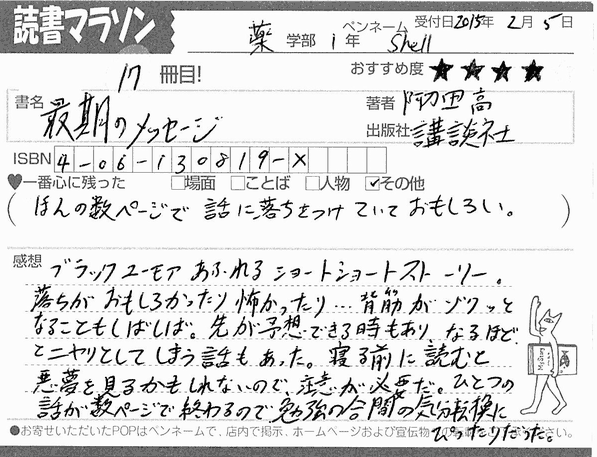 読書マラソン
薬 学部 1 年 ペンネーム Shell 受付日2015年 2月 5日
17 冊目! おすすめ度 ★★★★
書名 最期のメッセージ 著者 阿刀田高
出版社 講談社
ISBN 4-06-130819-X
♥一番心に残った □場面 □ことば □人物 ☑その他
(ほんの数ページで 話に落ちをつけていておもしろい。)
感想 ブラックユーモアあふれるショートショートストーリー。
落ちがおもしろかったり怖かったり…背筋がゾクッと
なることもしばしば。先が予想できる時もあり、なるほど
とニヤリとしてしまう話もあった。寝る前に読むと
悪夢を見るかもしれないので、注意が必要だ。ひとつの
話が数ページで終わるので勉強の合間の気分転換に
ぴったりだった。
●お寄せいただいたPOPはペンネームで、店内で掲示、ホームページおよび宣伝物